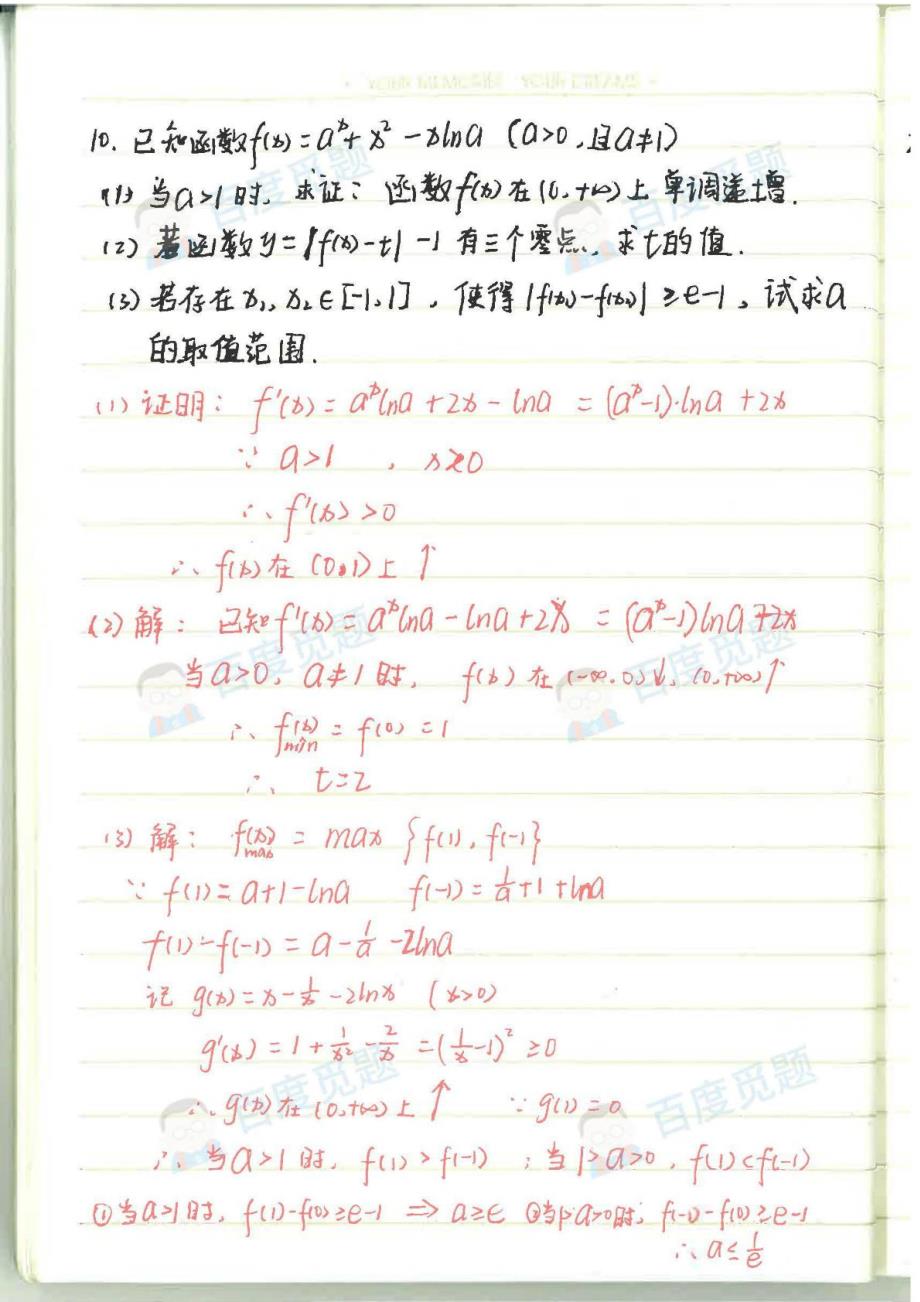 10. 已知函数f(x)=aˣ+x²-xlna (a>0,且a≠1)
(1) 当a>1时, 求证: 函数f(x)在(0,+∞)上单调递增.
(2) 若函数y=|f(x)-t|-1有三个零点, 求t的值.
(3) 若存在x₁, x₂∈[-1,1], 使得|f(x₁)-f(x₂)|≥e-1, 试求a
的取值范围.
(1) 证明: f'(x)=aˣlna+2x-lna=(aˣ-1)·lna+2x
∵ a>1 , x≥0
∴ f'(x)>0
∴ f(x)在(0,1)上↑
(2) 解: 已知f'(x)=aˣlna-lna+2x=(aˣ-1)lna+2x
当a>0, a≠1时, f(x)在(-∞,0)↓, (0,+∞)↑
∴ f(x)min=f(0)=1
∴ t=2
(3) 解: f(x)max=max{f(1), f(-1)}
∵ f(1)=a+1-lna f(-1)=1/a+1+lna
f(1)-f(-1)=a-1/a-2lna
记 g(x)=x-1/x-2lnx (x>0)
g'(x)=1+1/x²-2/x=(1/x-1)²≥0
∴ g(x)在(0,+∞)上↑ ∵ g(1)=0
∴ 当a>1时, f(1)>f(-1) ; 当1>a>0, f(1)<f(-1)
①当a>1时, f(1)-f(0)≥e-1 ⇒ a≥e ②当1>a>0时, f(-1)-f(0)≥e-1
∴ a≤1/e
百度觅题
百度觅题
百度觅题
百度觅题
百度觅题
百度觅题